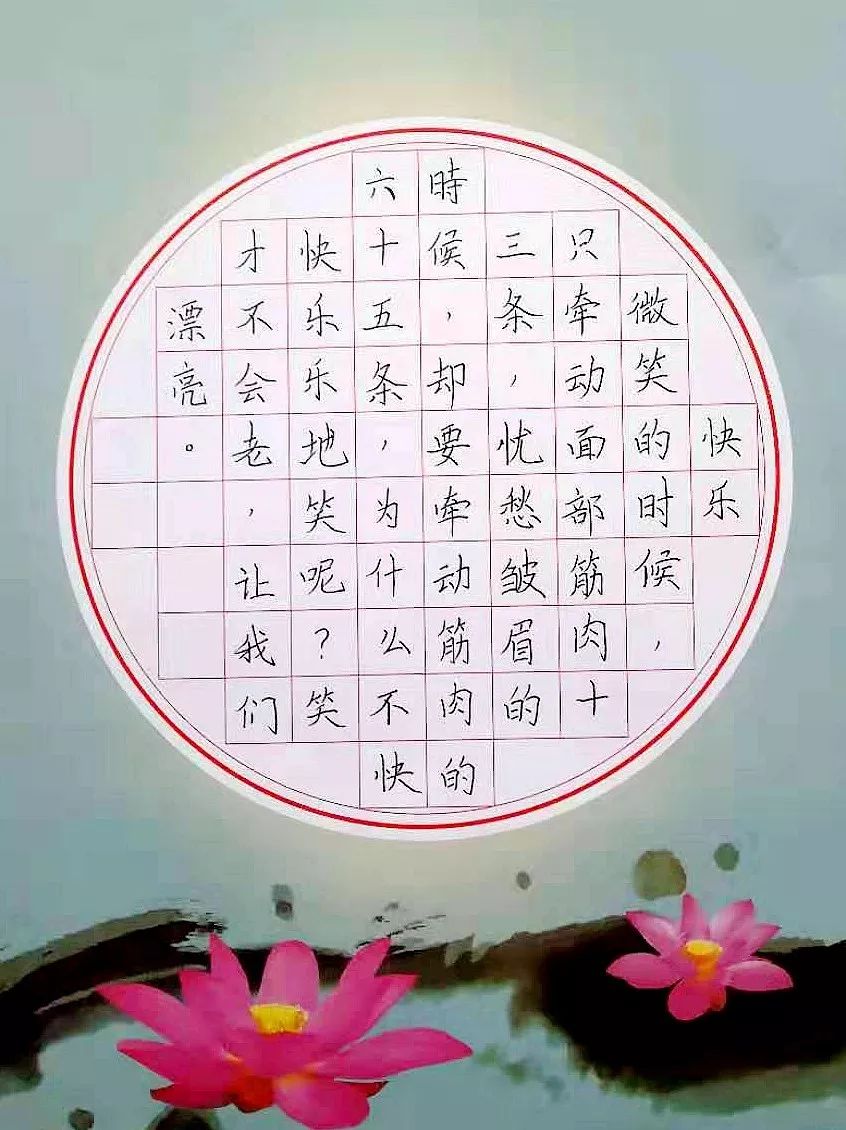 快乐
微笑的时候，
只牵动面部筋肉十
三条，忧愁皱眉的
時候，却要牵动筋肉的
六十五条，为什么不快
快乐乐地笑呢？笑
才不会老，让我们
漂亮。